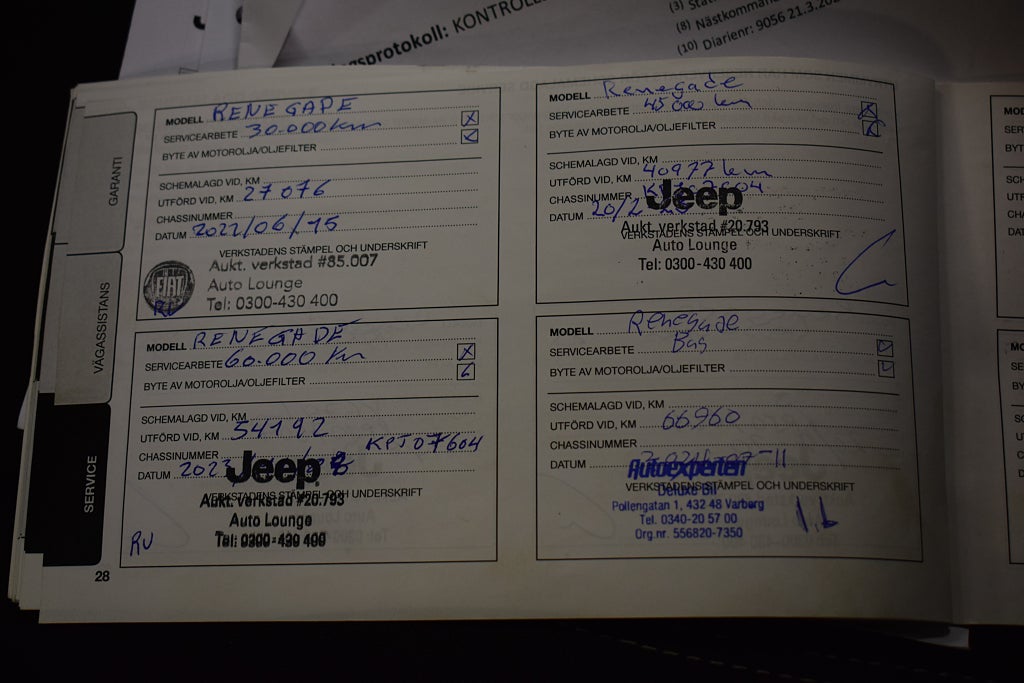 (3)
(8) Nästkomman
(10) Diarienr: 9056 21.3.20
gsprotokoll: KONTROLL
GARANTI
VÄGASSISTANS
SERVICE
MODELL RENEGADE
SERVICEARBETE 30.000 km
BYTE AV MOTOROLJA/OLJEFILTER
SCHEMALAGD VID, KM
UTFÖRD VID, KM 27076
CHASSINUMMER
DATUM 2022/06/15
VERKSTADENS STÄMPEL OCH UNDERSKRIFT
FIAT
Aukt. verkstad #85.007
Auto Lounge
Tel: 0300-430 400
RU
MODELL Renegade
SERVICEARBETE 45000 km
BYTE AV MOTOROLJA/OLJEFILTER
SCHEMALAGD VID, KM
UTFÖRD VID, KM 40977 km
CHASSINUMMER
DATUM 20/2
Jeep
Aukt. verkstad #20.793
VERKSTADENS STÄMPEL OCH UNDERSKRIFT
Auto Lounge
Tel: 0300-430 400
MODELL RENEGADE
SERVICEARBETE 60.000 km
BYTE AV MOTOROLJA/OLJEFILTER
SCHEMALAGD VID, KM
UTFÖRD VID, KM 54192
CHASSINUMMER KPJ07604
DATUM 2023
Jeep
VERKSTADENS STÄMPEL OCH UNDERSKRIFT
Aukt. verkstad #20.793
Auto Lounge
Tel: 0300-430 400
RU
MODELL Renegade
SERVICEARBETE Bas
BYTE AV MOTOROLJA/OLJEFILTER
SCHEMALAGD VID, KM
UTFÖRD VID, KM 66960
CHASSINUMMER
DATUM
Autoexperten
VERKSTADENS STÄMPEL OCH UNDERSKRIFT
Deluxe Bil
Pollengatan 1, 432 48 Varberg
Tel. 0340-20 57 00
Org.nr. 556820-7350
28